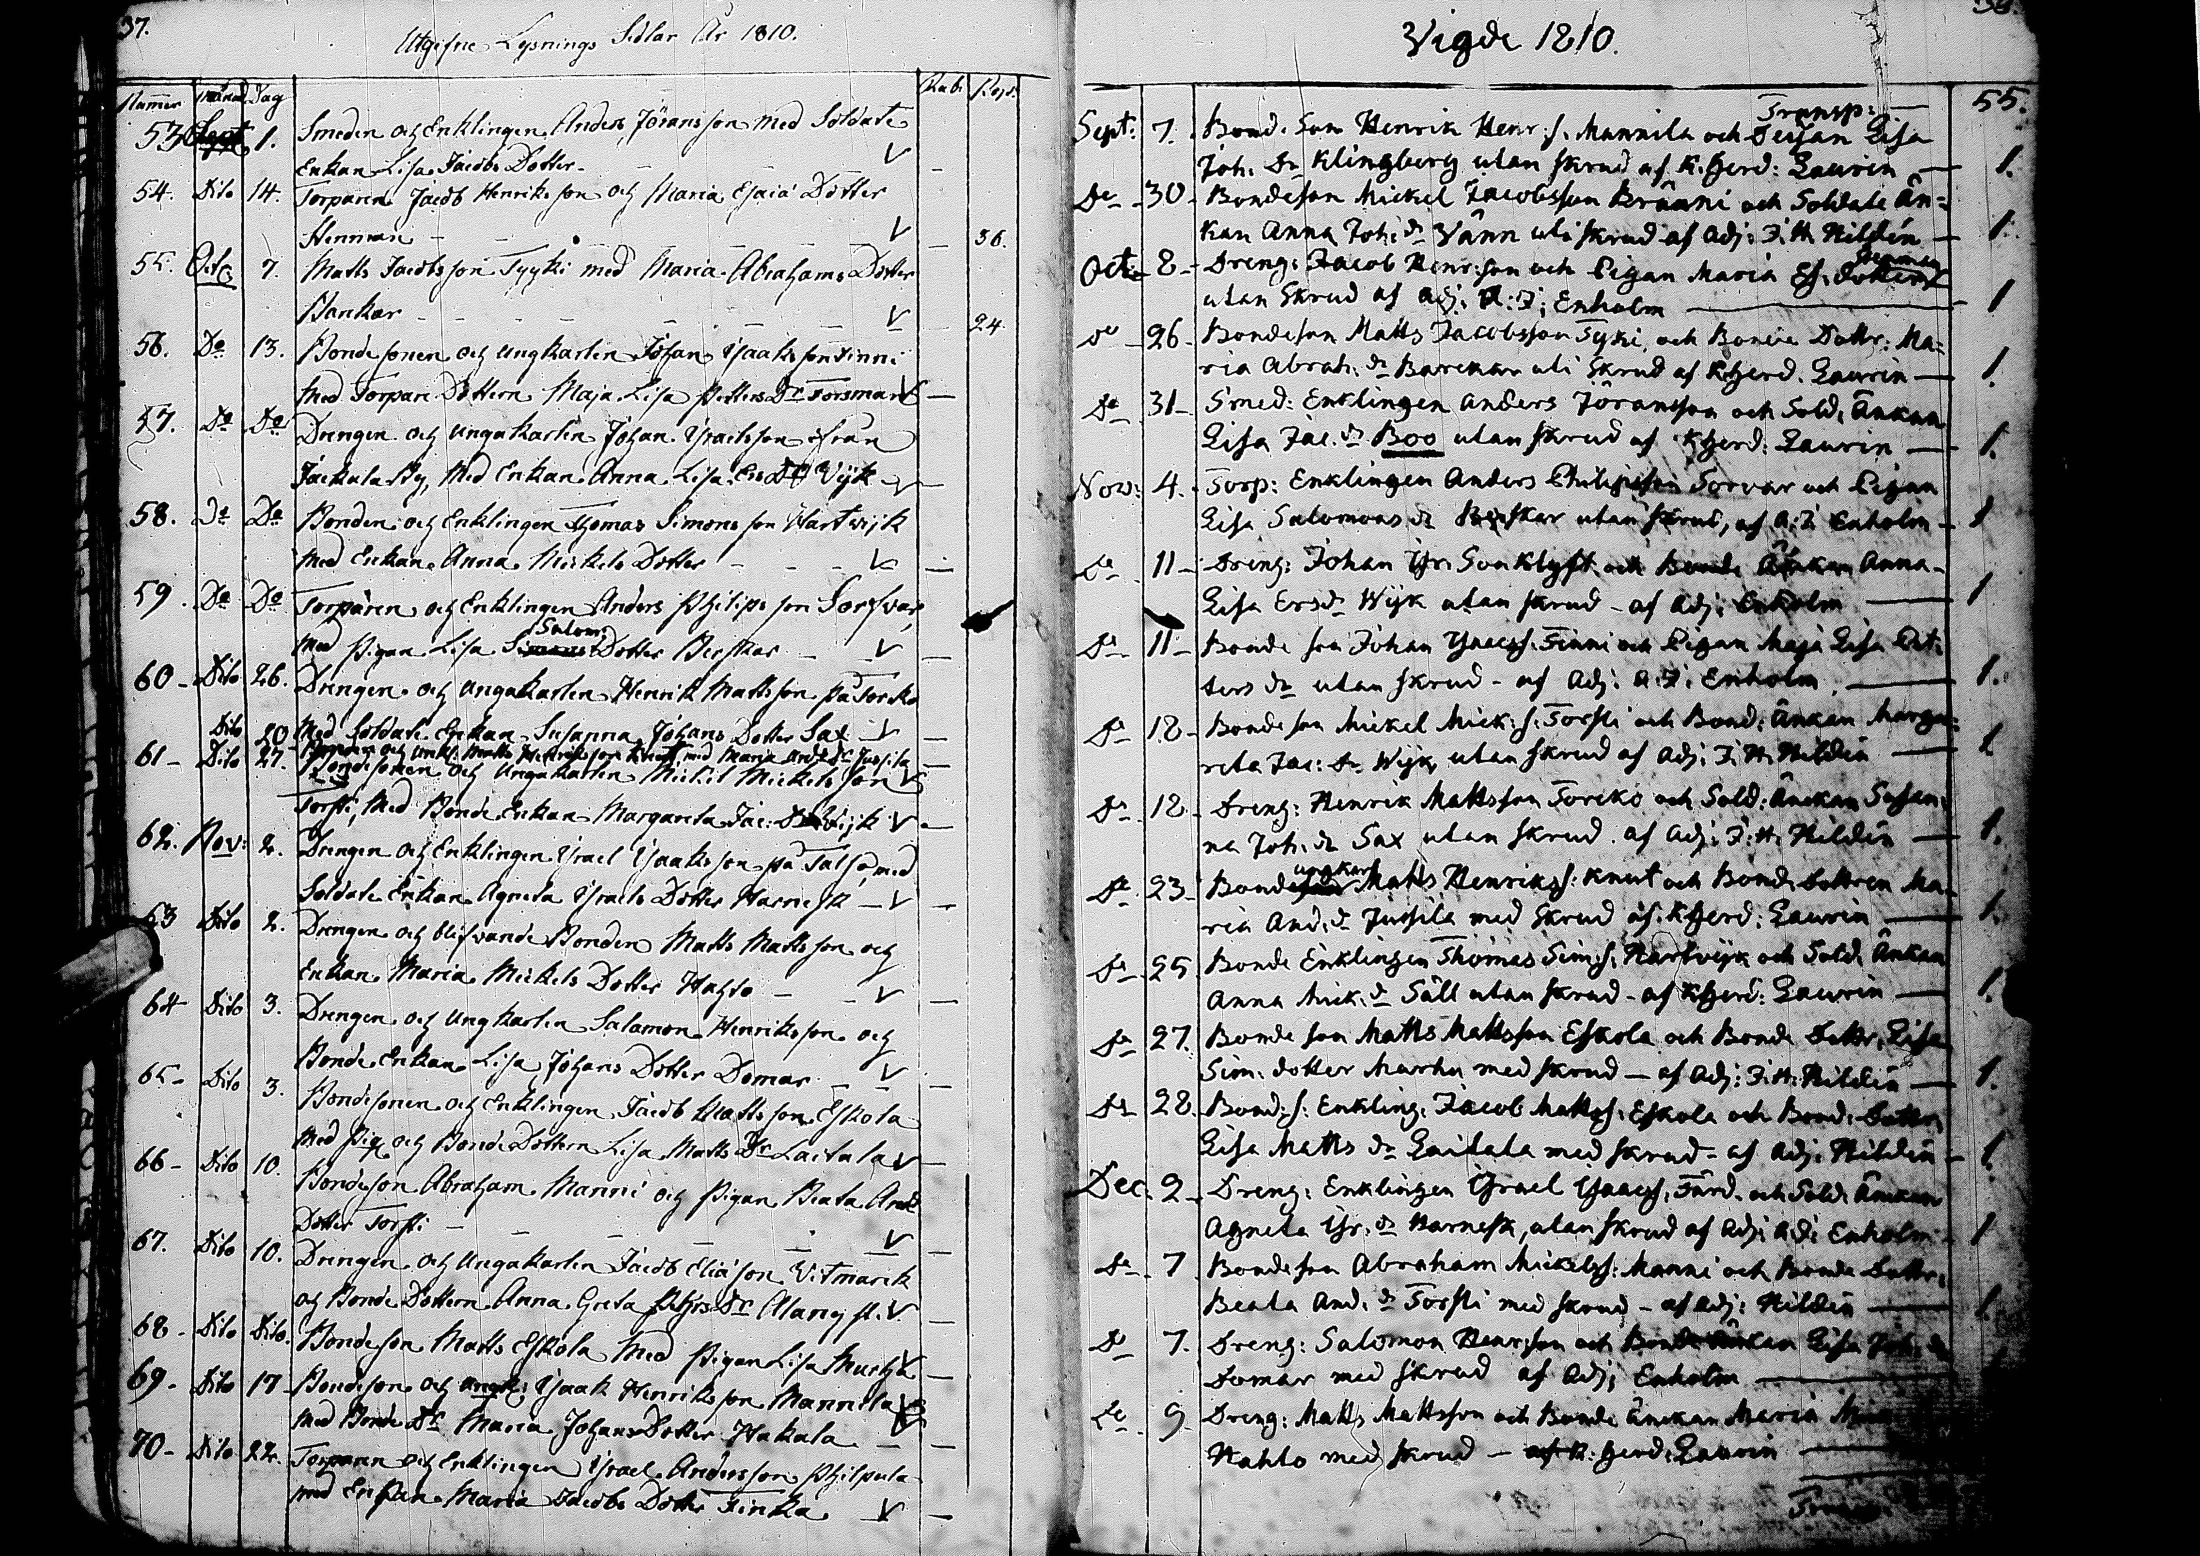 37.
Utgifne Lysnings Sedlar År 1810.
Nummer Månad Dag Kab. Kop.
53 Sept 1. Smeden och Enklingen Anders Jöransson med Soldate
Enkan Lisa Jacobs Dotter -
54. Dito 14. Torparen Jacob Henriksson och Maria Esaiæ Dotter
Henman - - - V - 36.
55. Octo 7. Matts Jacobsson Tyyki med Maria Abrahams Dotter
Bankar - - - V - 24.
56. Do 13. Bondesonen och ungkarlen Johan Ysaaksson Finni
med Torpare Dottern Maja Lisa Petters Dr Forsmark V -
57. Do Do Drengen och ungakarlen Johan Ysraelsson ifrån
Jackula By, Med Enkan Anna Lisa Ers Dr Wijk - V -
58. Do Do Bonden och Enklingen Thomas Simonsson Hartwijk
med Enkan Anna Mickels Dotter - - - V -
59. Do Do Torparen och Enklingen Anders Philipsson Sorfvar,
Salom:
Med Pigan Lisa Dotter Berskar - V -
60 - Dito 26. Drengen och ungakarlen Henrik Mattsson på Torcko
Med Soldate Enkan Susanna Johans Dotter Sax - V -
Dito 20 Bonden och unkl: Matts Henriksson Knut, med Maria And: Dr Jussila
61 - Dito 27. Bondesonen och Ungakarlen Mickel Mickelsson V
Torsti, Med Bonde Enkan Margareta Jac: Dr Wijk V -
62. Nov: 2. Drengen och Enklingen Ysrael Ysaaksson på Talso, med
Soldate Enkan Agneta Ysraels Dotter Harnesk - V -
63 Dito 2. Drengen och blifvande Bonden Matts Mattsson och
Enkan Maria Mickels Dotter Hahto - - V -
64 Dito 3. Drengen och Ungkarlen Salamon Henriksson och
Bonde Enkan Lisa Johans Dotter Domar - V -
65 - Dito 3. Bondesonen och Enklingen Jacob Mattsson Eskola
Med Pig och Bonde Dottern Lisa Matts Dr Laitala V -
66 - Dito 10. Bondeson Abraham Manni och Pigan Beata And:
Dotter Torsti - - - V -
67. Dito 10. Drengen och Ungakarlen Jacob Eliæson Witmarck
och Bonde Dottern Anna Greta Pehrs Dr V -
68 - Dito Dito. Bondeson Matts Eskola Med Pigan Lisa Murhu V -
69 - Dito 17 Bondeson och ungk: Ysaak Henriksson Mannila V
Med Bonde Dr Maria Johans Dotter Hakala - -
70 - Dito 22. Torparen och Enklingen Ysrael Andersson Philpula
med Enkan Maria Jacobs Dotter Finka V -
38.
Vigde 1810.
Transp: - 55.
Sept: 7. Bond. Son Henrik Henr: s. Mannila och Pigan Lisa
Joh. Dr Klingberg utan skrud af K.herd: Laurin - 1.
Do - 30 - Bondeson Mickel Jacobsson Brünni och Soldate Än-
kan Anna Joh: dr Vänn uti skrud af Adj: J. H. Hildén - 1.
Oct: 8 - Dreng: Jacob Henr:son och Pigan Maria Es: dotter Henman
utan Skrud af Adj. A: J: Enholm - 1
Do - 26 - Bondeson Matts Jacobsson Tyki, och Bonde Dottr: Ma-
ria Abrah: dr Banckar uti Skrud af K.herd. Laurin - 1.
Do 31 - Smed: Enklingen Anders Jöransson och Sold: Änkan
Lisa Jac. dr Boo utan skrud af K.herd: Laurin - 1.
Nov: 4. Torp: Enklingen Anders Philipsson Sorvar och Pigan
Lisa Salomons dr Berskar utan skrud, af A: J. Enholm - 1
Do 11 - Dreng: Johan Isr: Son Klyft och Bonde Änkan Anna
Lisa Ersdr Wijk utan skrud - af Adj: Enholm - 1
Do 11 - Bonde son Johan Ysaacs: Finni och Pigan Maja Lisa Pet-
ters dr utan skrud - af Adj: A: J: Enholm - 1.
Do 18 - Bonde son Mickel Mick: s. Torsti och Bond: Änkan Marga-
reta Jac: dr Wijk utan skrud af Adj: J. H. Hildén - 1
Do 18. Dreng: Henrik Mattsson Torcko och Sold: Änckan Susan-
na Joh. dr Sax utan skrud af Adj: J. H. Hildén - 1.
ungkarl
Do 23 - Bonde Matts Henriks: Knut och Bond: dottren Ma-
ria And: dr Jussila med skrud af K.herd: Laurin - 1.
Do 25 Bonde Enklingen Thomas Sim: s. Hartvijk och Sold. Änkan
Anna Mick. dr Säll utan skrud - af K.herd: Laurin - 1.
Do 27. Bonde son Matts Mattsson Eskola och Bonde dottr. Lisa
Sim: dotter Murhu med skrud - af Adj: J. H. Hildén - 1.
Do 28. Bond: s: Enkling: Jacob Mattss: Eskola och Bond: dottr:
Lisa Matts dr Laitala med skrud - af Adj: Hildén - 1.
Dec. 2 - Dreng: Enklingen Ysrael Ysaacs: Färd. och Sold: Änkan
Agneta Isr. dr Harnesk, utan skrud af Adj: A: J: Enholm - 1
Do 7 Bondeson Abraham Mickelss: Manni och Bonde dottr:
Beata And: dr Torsti med skrud - af Adj: Hildén - 1
Do 7. Dreng: Salomon Henr:son och Bonde Änkan Lisa Joh: dr
Domar med Skrud af Adj: Enholm -
Do 9 Dreng: Matts Mattsson och Bonde Änckan Maria
Hahto med skrud - af K: herd: Laurin -